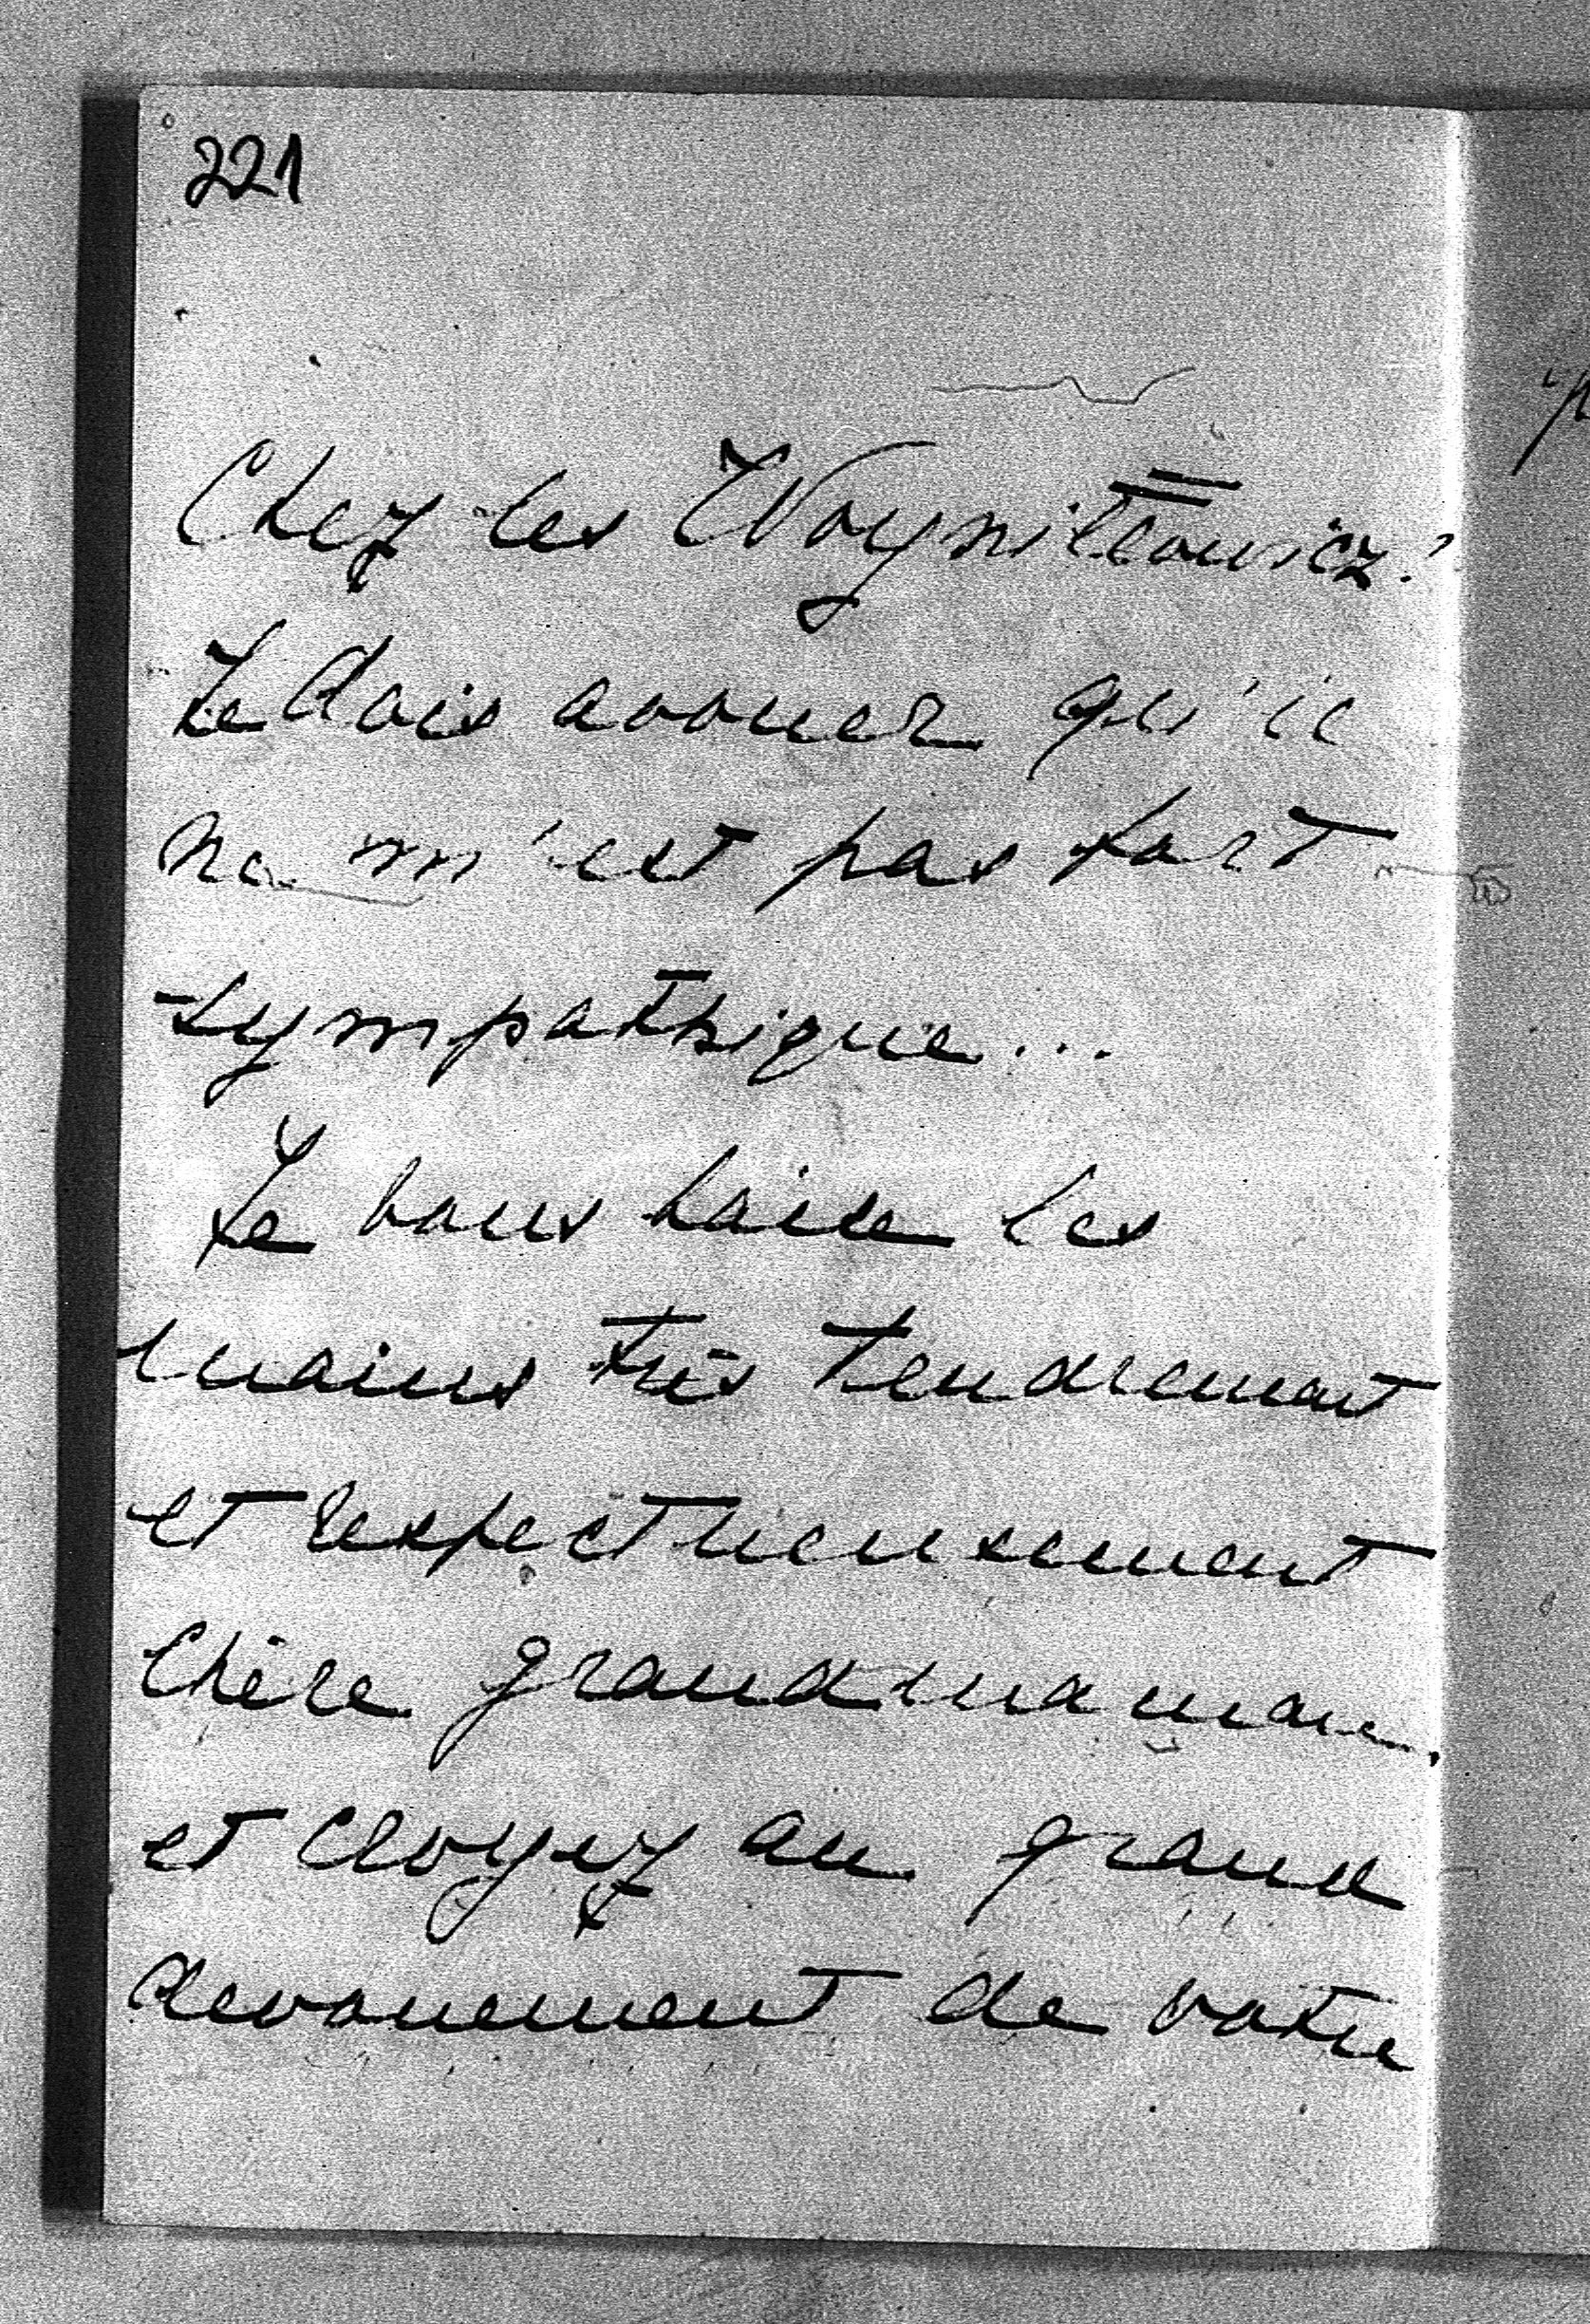 221
Chez les Woyniłłowicz!
Je dois avouer qu'il
ne m'est pas fort
sympathique...
Je vous baise les
mains très tendrement
et respectueusement
chère grandmaman,
et croyez au grand
devouement de votre